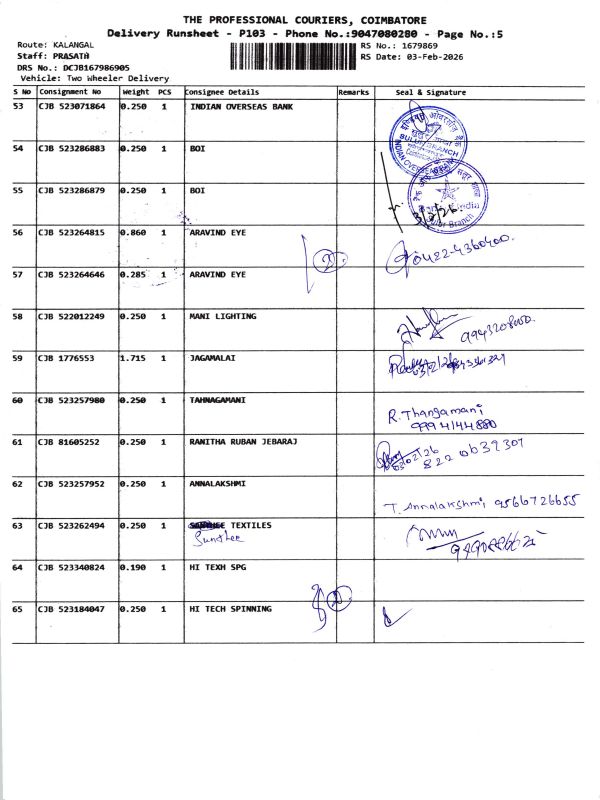 THE PROFESSIONAL COURIERS, COIMBATORE
Delivery Runsheet - P103 - Phone No.:9047080280 - Page No.:5
Route: KALANGAL
RS No.: 1679869
Staff: PRASATH
RS Date: 03-Feb-2026
DRS No.: DCJB167986905
Vehicle: Two Wheeler Delivery
S No Consignment No Weight PCS Consignee Details Remarks Seal & Signature
53 CJB 523071864 0.250 1 INDIAN OVERSEAS BANK
54 CJB 523286883 0.250 1 BOI
55 CJB 523286879 0.250 1 BOI
3/2/26
56 CJB 523264815 0.860 1 ARAVIND EYE
2 0422-4360400.
57 CJB 523264646 0.285 1 ARAVIND EYE
58 CJB 522012249 0.250 1 MANI LIGHTING
59 CJB 1776553 1.715 1 JAGAMALAI
03/02/26
60 CJB 523257980 0.250 1 TAHNAGAMANI
R. Thangamani
9994144880
61 CJB 81605252 0.250 1 RANITHA RUBAN JEBARAJ
03/02/26
62 CJB 523257952 0.250 1 ANNALAKSHMI
T. Annalakshmi 9566726655
63 CJB 523262494 0.250 1 TEXTILES
64 CJB 523340824 0.190 1 HI TEXH SPG
65 CJB 523184047 0.250 1 HI TECH SPINNING
2